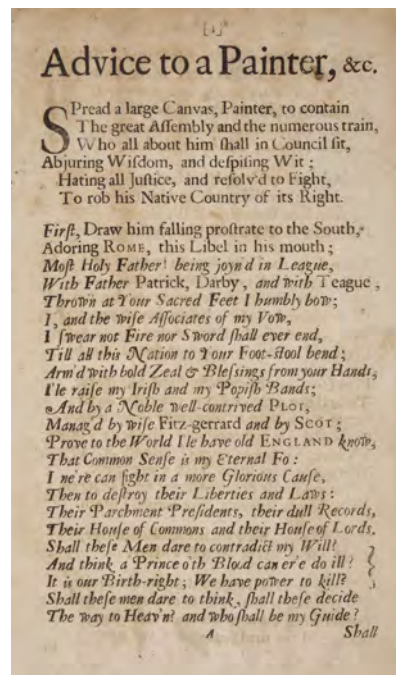 [1]
Advice to a Painter, &c.
SPread a large Canvas, Painter, to contain
The great Aſſembly and the numerous train,
Who all about him ſhall in Council ſit,
Abjuring Wiſdom, and deſpiſing Wit ;
Hating all Juſtice, and reſolv'd to Fight,
To rob his Native Country of its Right.
Firſt, Draw him falling proſtrate to the South,
Adoring ROME, this Libel in his mouth ;
Moſt Holy Father! being joyn'd in League,
With Father Patrick, Darby, and with Teague,
Thrown at Your Sacred Feet I humbly bow;
I, and the wiſe Aſſociates of my Vow,
I ſwear not Fire nor Sword ſhall ever end,
Till all this Nation to Your Foot-ſtool bend ;
Arm'd with bold Zeal & Bleſsings from your Hands,
I'le raiſe my Iriſh and my Popiſh Bands;
And by a Noble well-contrived PLOT,
Manag'd by wiſe Fitz-gerrard and by SCOT ;
Prove to the World I le have old ENGLAND know,
That Common Senſe is my Eternal Fo :
I ne're can fight in a more Glorious Cauſe,
Then to deſtroy their Liberties and Laws :
Their Parchment Preſidents, their dull Records,
Their Houſe of Commons and their Houſe of Lords.
Shall theſe Men dare to contradict my Will?
And think a Prince o'th Blood can er'e do ill ?
It is our Birth-right ; We have power to kill?
Shall theſe men dare to think, ſhall theſe decide
The way to Heav'n? and who ſhall be my Guide ?
A Shall